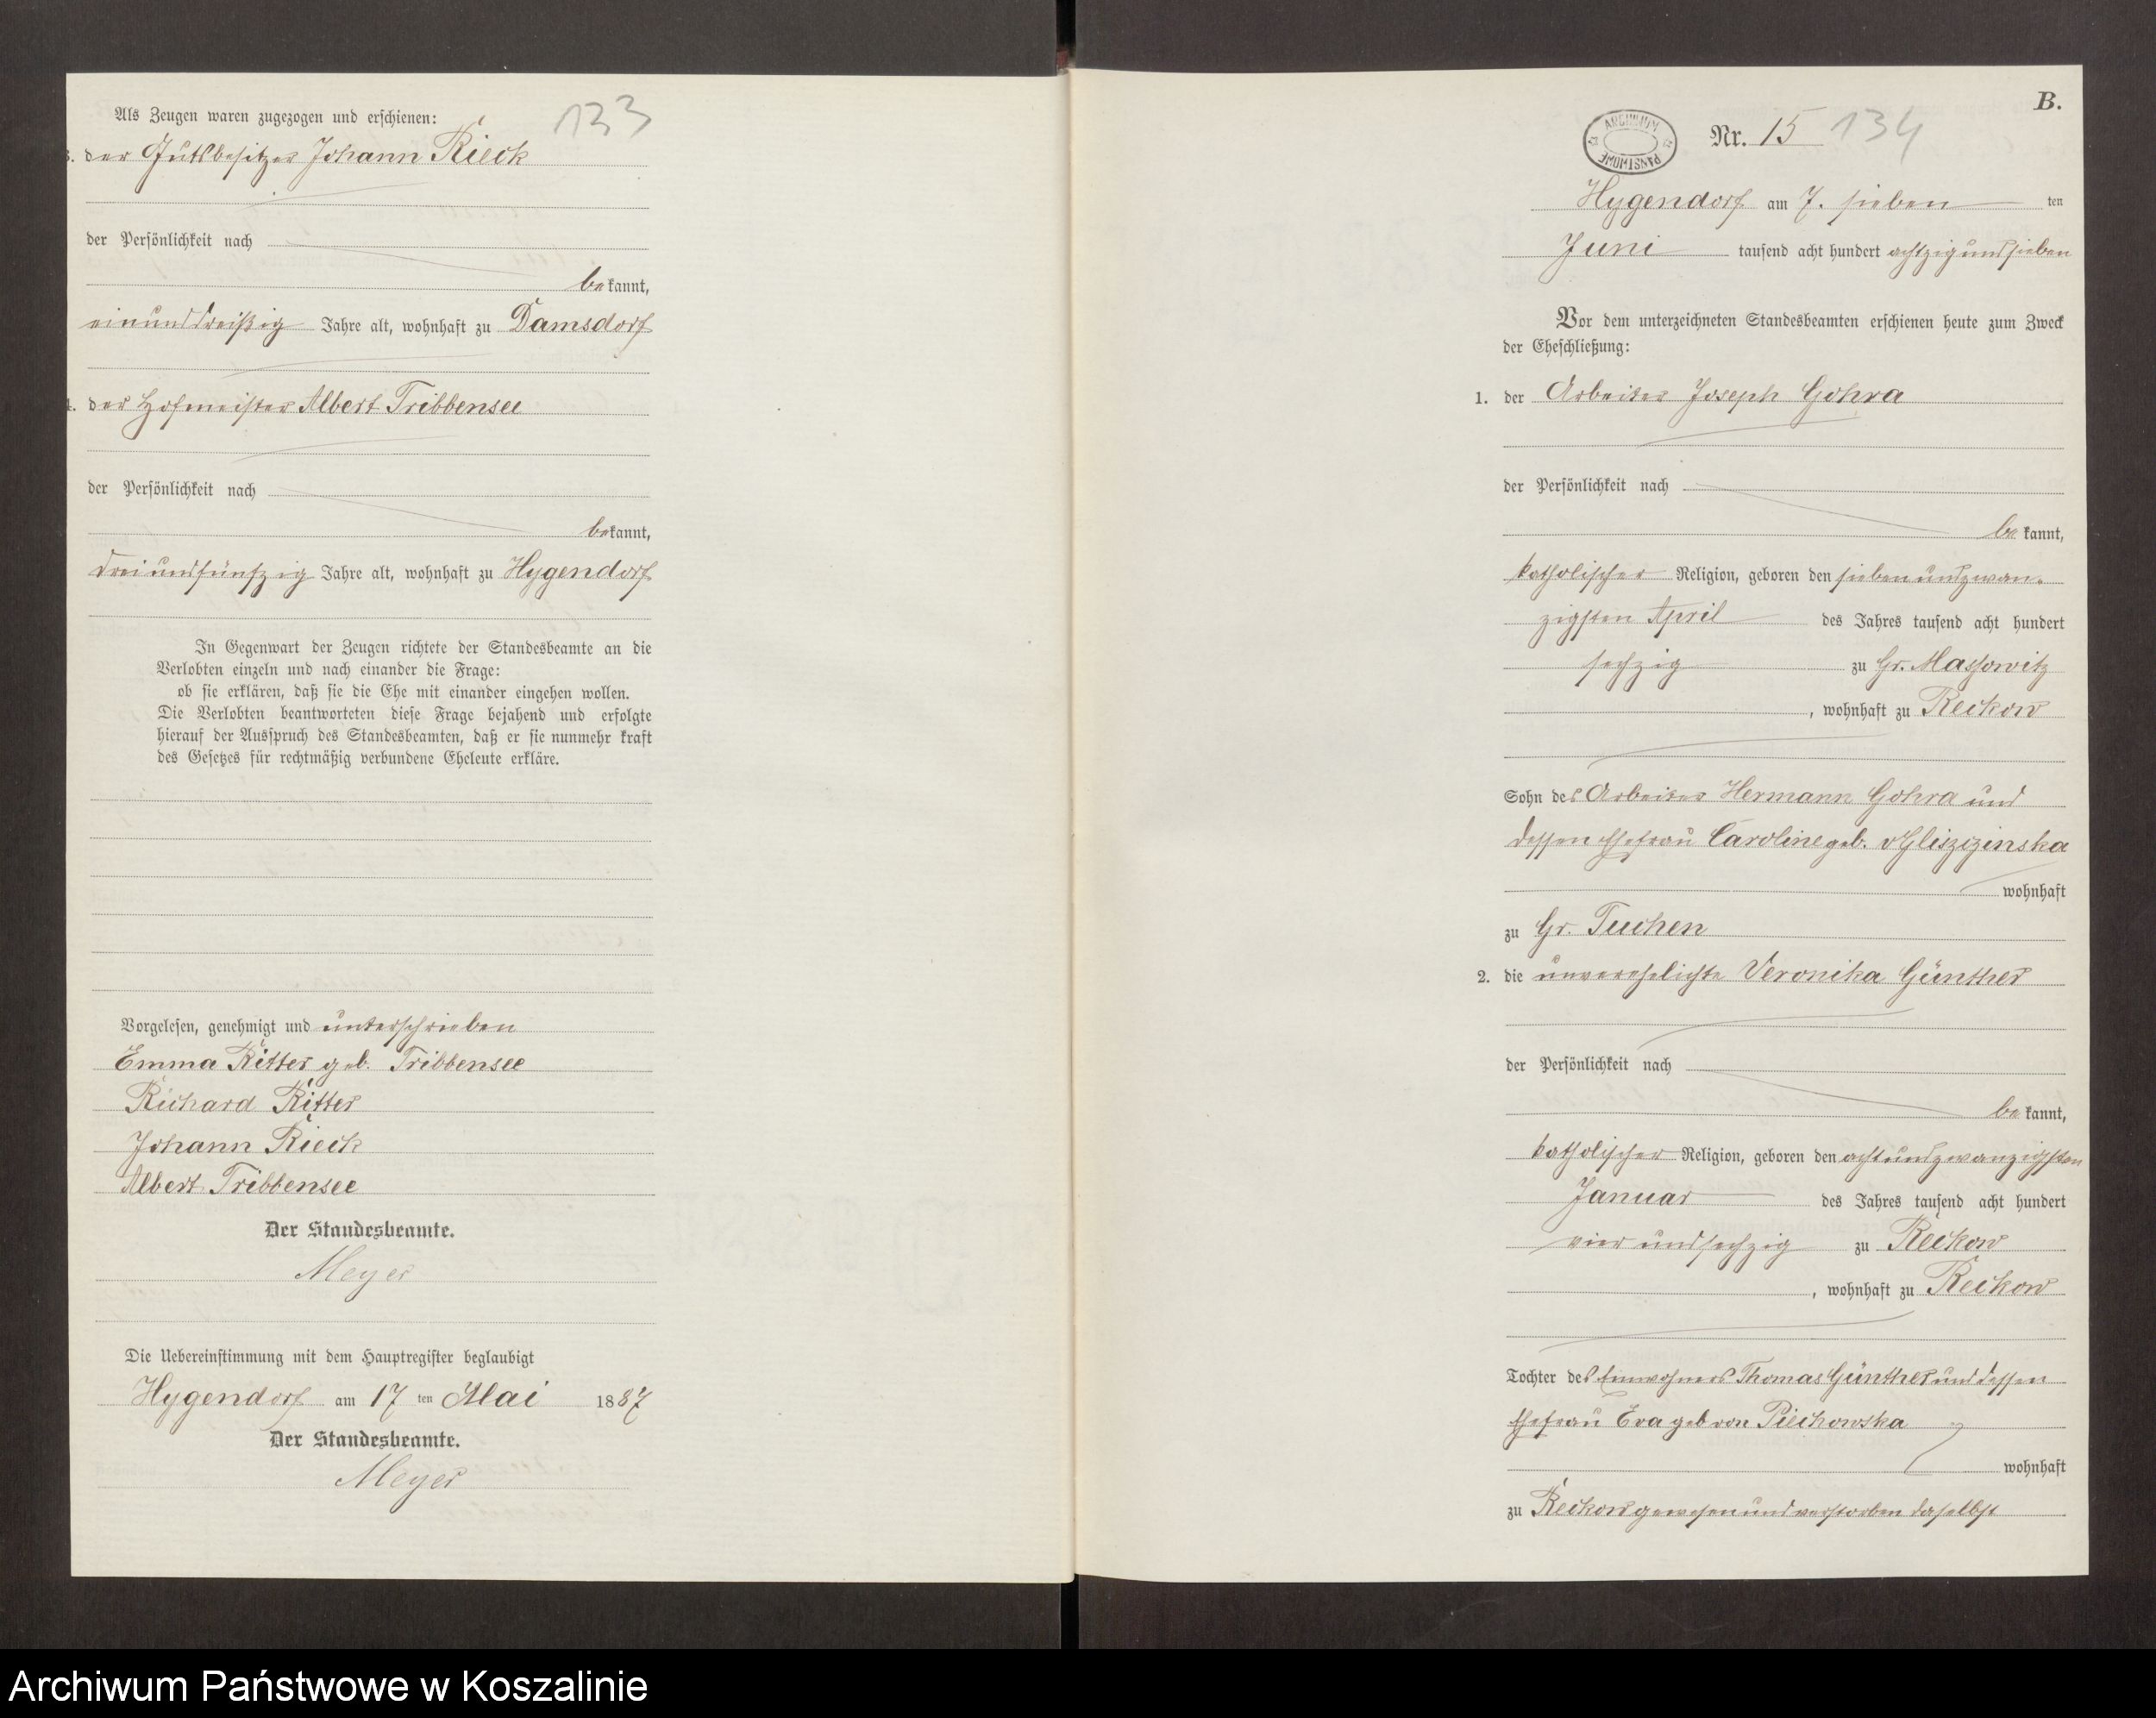 Als Zeugen waren zugezogen und erschienen:
133
3. der Gutsbesitzer Johann Rieck
der Persönlichkeit nach
bekannt,
einunddreißig Jahre alt, wohnhaft zu Damsdorf
4. der Hofmeister Albert Tribbensee
der Persönlichkeit nach
bekannt,
dreiundfünfzig Jahre alt, wohnhaft zu Hygendorf
In Gegenwart der Zeugen richtete der Standesbeamte an die
Verlobten einzeln und nach einander die Frage:
ob sie erklären, daß sie die Ehe mit einander eingehen wollen.
Die Verlobten beantworteten diese Frage bejahend und erfolgte
hierauf der Ausspruch des Standesbeamten, daß er sie nunmehr kraft
des Gesetzes für rechtmäßig verbundene Eheleute erkläre.
Vorgelesen, genehmigt und unterschrieben
Emma Ritter geb. Tribbensee
Richard Ritter
Johann Rieck
Albert Tribbensee
Der Standesbeamte.
Meyer
Die Uebereinstimmung mit dem Hauptregister beglaubigt
Hygendorf am 17 ten Mai 1887
Der Standesbeamte.
Meyer
B.
ARCHIWUM PAŃSTWOWE
Nr. 15 134
Hygendorf am 7. sieben ten
Juni tausend acht hundert achtzig und sieben
Vor dem unterzeichneten Standesbeamten erschienen heute zum Zweck
der Eheschließung:
1. der Arbeiter Joseph Gohra
der Persönlichkeit nach
bekannt,
katholischer Religion, geboren den siebenundzwan-
zigsten April des Jahres tausend acht hundert
sechzig zu Gr. Massowitz
, wohnhaft zu Reckow
Sohn des Arbeiter Hermann Gohra und
dessen Ehefrau Caroline geb. v Gliszizinska
wohnhaft
zu Gr. Tuchen
2. die unverehelichte Veronika Günther
der Persönlichkeit nach
bekannt,
katholischer Religion, geboren den achtundzwanzigsten
Januar des Jahres tausend acht hundert
vier und sechzig zu Reckow
, wohnhaft zu Reckow
Tochter des Einwohners Thomas Günther und dessen
Ehefrau Eva geb von Piechowska
wohnhaft
zu Reckow gewesen und verstorben daselbst
Archiwum Państwowe w Koszalinie